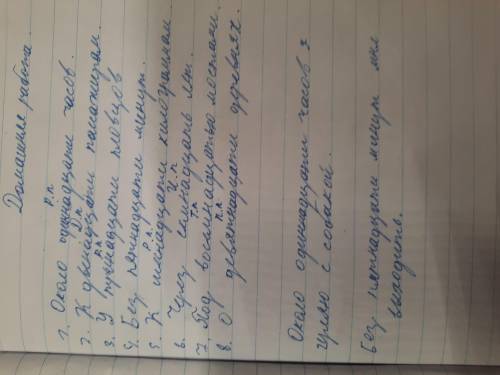 Домашняя работа.
Р.п.
1. Около одиннадцати часов.
Д.п.
2. К двенадцати пассажирам.
Р.п.
3. У тринадцати пловцов
4. Без пятнадцати минут.
Р.п.
5. К шестнадцати килограммам
И.п.
6. Через семнадцать лет.
Т.п.
7. Под восемнадцатью мостами.
П.п.
8. О девятнадцати деревьях.
Около одиннадцати часов я
гуляю с собакой.
Без пятнадцати минут мы
выходите.